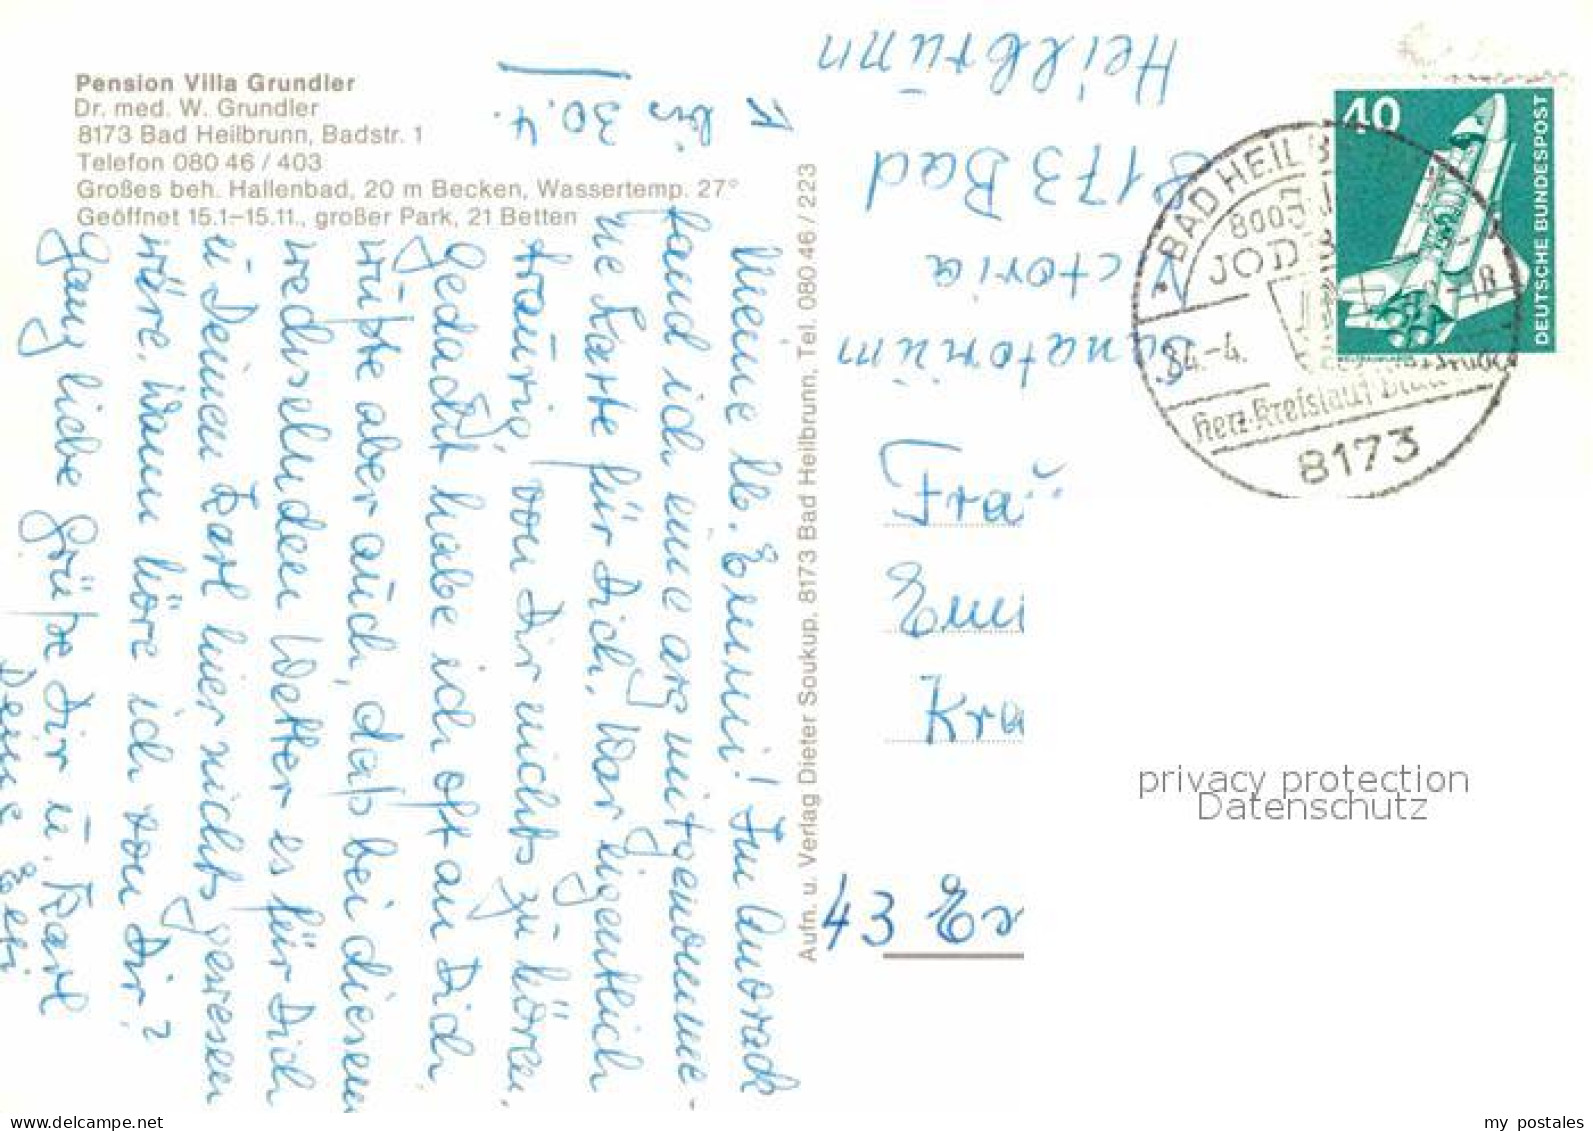 Pension Villa Grundler
Dr. med. W. Grundler
8173 Bad Heilbrunn, Badstr. 1
Telefon 080 46 / 403
Großes beh. Hallenbad, 20 m Becken, Wassertemp. 27°
Geöffnet 15.1–15.11., großer Park, 21 Betten
bis
30.4.
Meine lb. Emmi! Im Anorack
fand ich eine arg mitgenomme-
ne Karte für Dich. War eigentlich
traurig, von Dir nichts zu hören.
Gedacht habe ich oft an Dich,
wüßte aber auch, daß bei diesem
wechselnden Wetter es für Dich
u Deinen Karl hier nichts gewesen
wäre. Wann höre ich von Dir?
Ganz liebe Grüße Dir u. Karl
Deine
Aufn. u. Verlag Dieter Soukup, 8173 Bad Heilbrunn, Tel. 080 46 / 223
Sanatorium
Victoria
8173 Bad
Heilbrunn
40
DEUTSCHE BUNDESPOST
BAD HEILB
JOD
84.-4.
-18
Herz-Kreislauf
8173
Fra
Emi
Kra
43 Es
privacy protection
Datenschutz
delcampe.net
my_postales